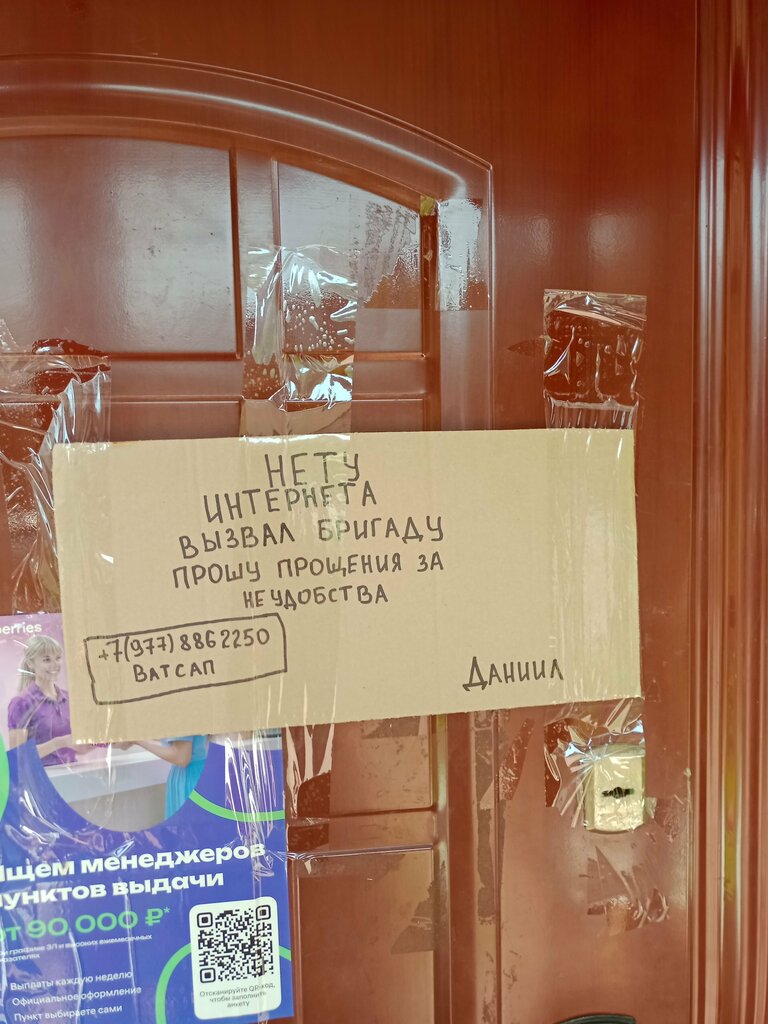 НЕТУ
ИНТЕРНЕТА
ВЫЗВАЛ БРИГАДУ
ПРОШУ ПРОЩЕНИЯ ЗА
НЕУДОБСТВА
+7(977)8862250
ВАТСАП
ДАНИИЛ
berries
Ищем менеджеров
пунктов выдачи
от 90 000 ₽*
графике ЗП и высоких ежемесячных
показателях
Выплаты каждую неделю
Официальное оформление
Пункт выбираете сами
Отсканируйте QR-код,
чтобы заполнить
анкету